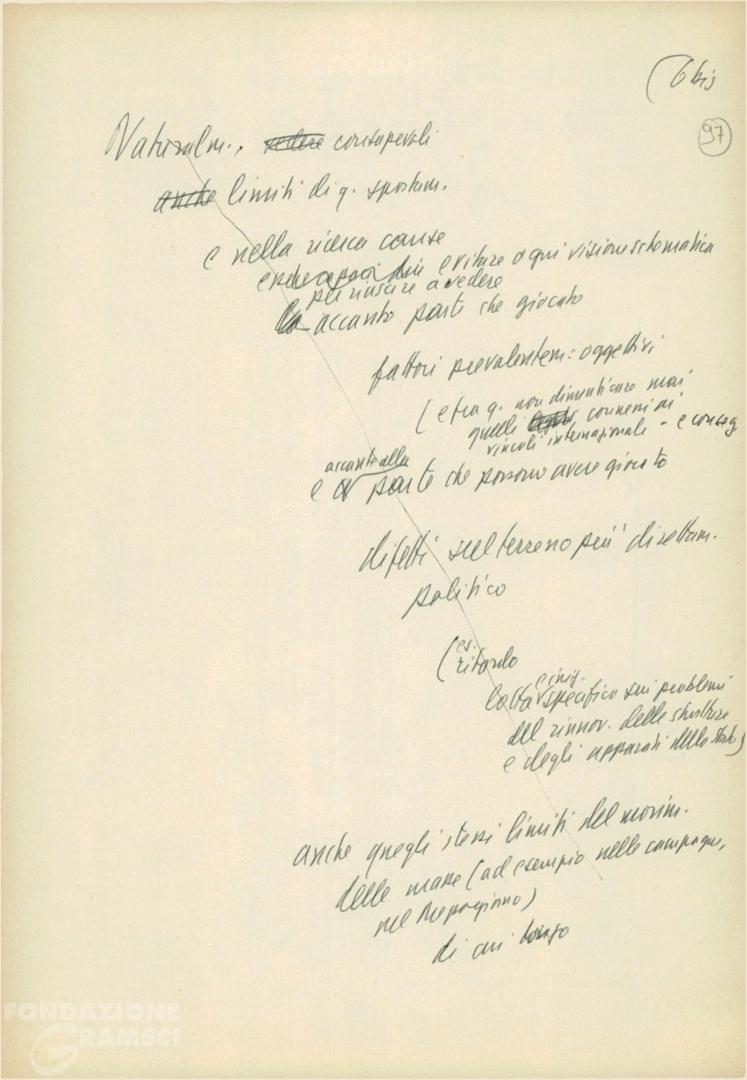 (6 bis
97
Naturalm., vedere consapevoli
anche limiti di q. spostam.
e nella ricerca cause
evitare ogni visione schematica
per riuscire a vedere
la accanto parte che giocato
fattori prevalentem: oggettivi
(e fra q. non dimenticare mai
quelli connessi ai
vincoli internazionali - e conseg.
accanto alla
e parte che possono avere giocato
difetti sul terreno più direttam.
politico
(es.
ritardo
e iniz.
lotta specifico sui problemi
del rinnov. delle strutture
e degli apparati dello Stato)
anche quegli stessi limiti del movim.
delle masse (ad esempio nelle campagne,
nel Mezzogiorno)
di cui
FONDAZIONE
GRAMSCI